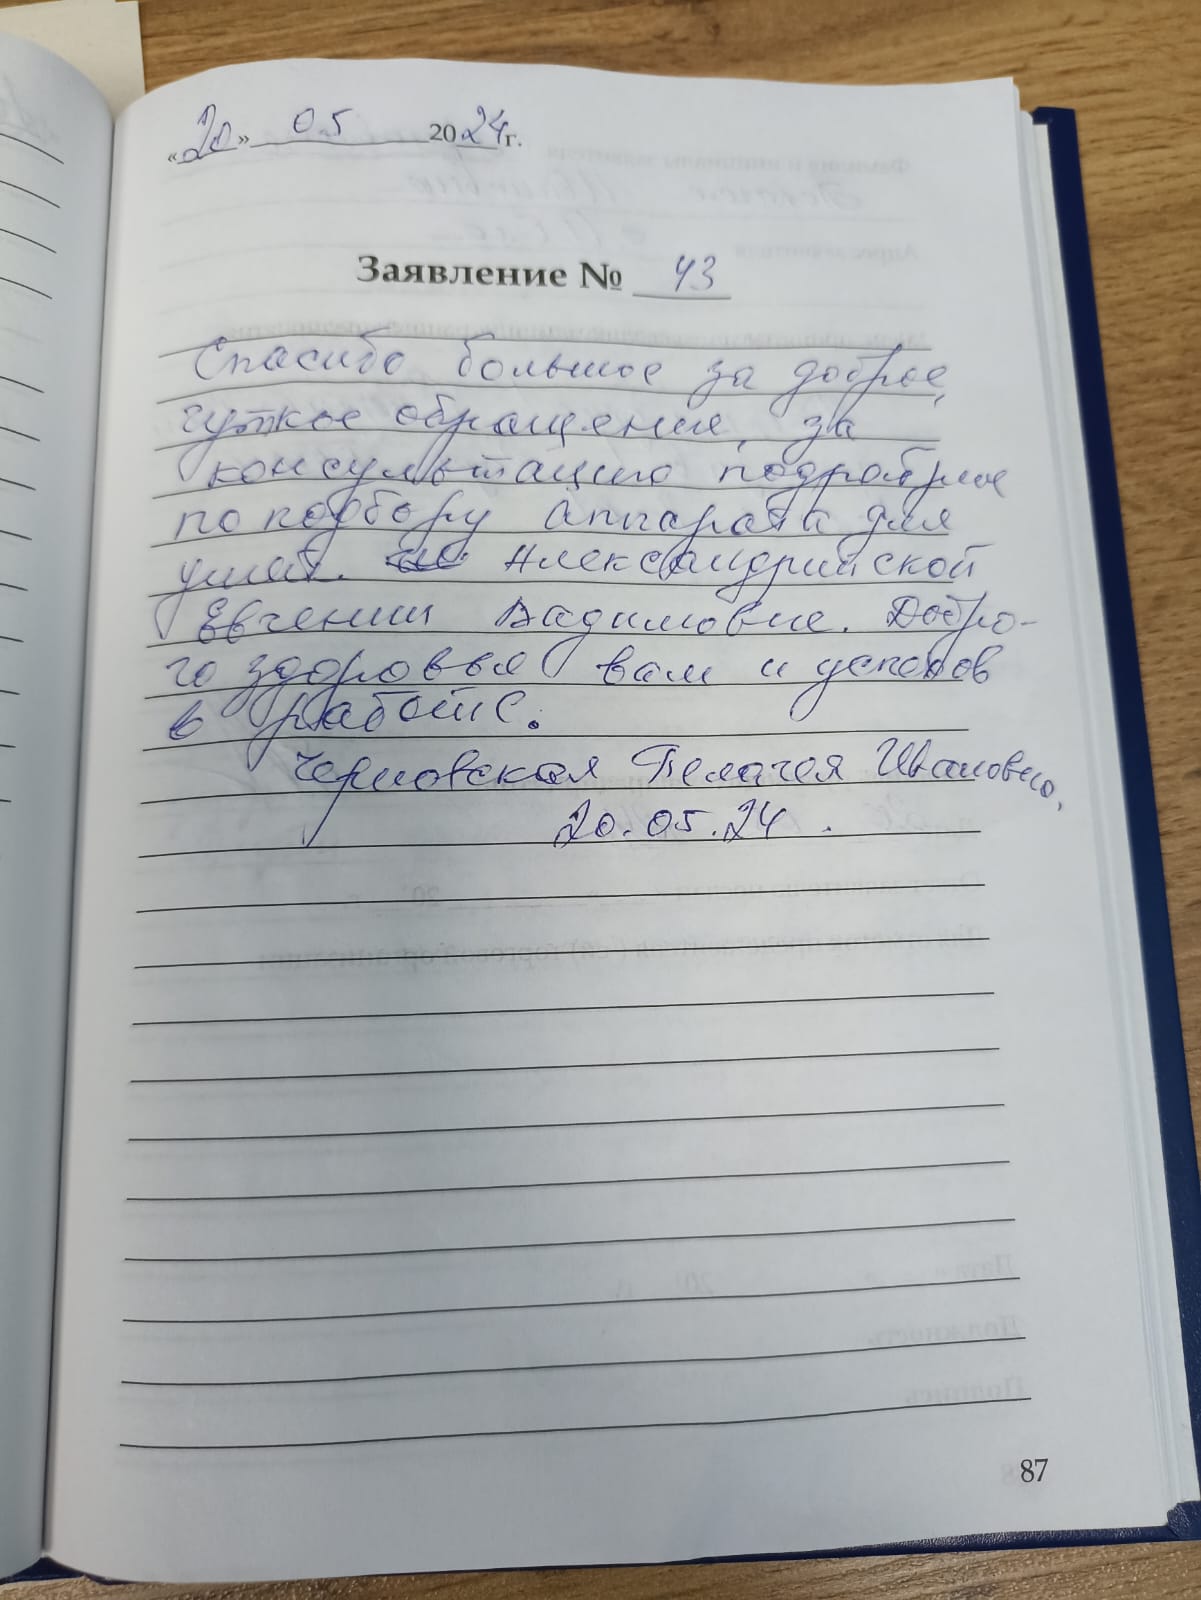 «20» 05 2024г.
Заявление № 43
Спасибо большое за доброе,
чуткое обращение, за
консультацию подробное
по подбору аппарата для
ушей. Александрийской
Евгении Вадимовне. Добро-
го здоровья вам и успехов
в работе.
Черновская Пелагея Ивановна,
20.05.24.
87